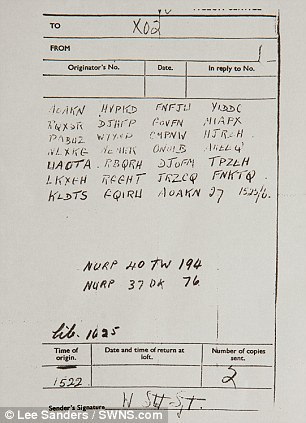 PIGEON SERVICE
TO X02
FROM
Originator's No. Date. In reply to No.
AOAKN HVPKD FNFJU YIDDC
RQXSR DJHFP GOVFN MIAPX
PABUZ WYYNP CMPNW HJRZH
NLXKG MEMKK ONOIB AKEEQ
UAOTA RBQRH DJOFM TPZEH
LKXGH RGGHT JRZCQ FNKTQ
KLDTS GQIRU AOAKN 27 1525/6.
NURP 40 TW 194
NURP 37 DK 76
lib. 1625
Time of origin. Date and time of return at loft. Number of copies sent.
1522 2
Sender's Signature W Stt Sjt.
© Lee Sanders / SWNS.com